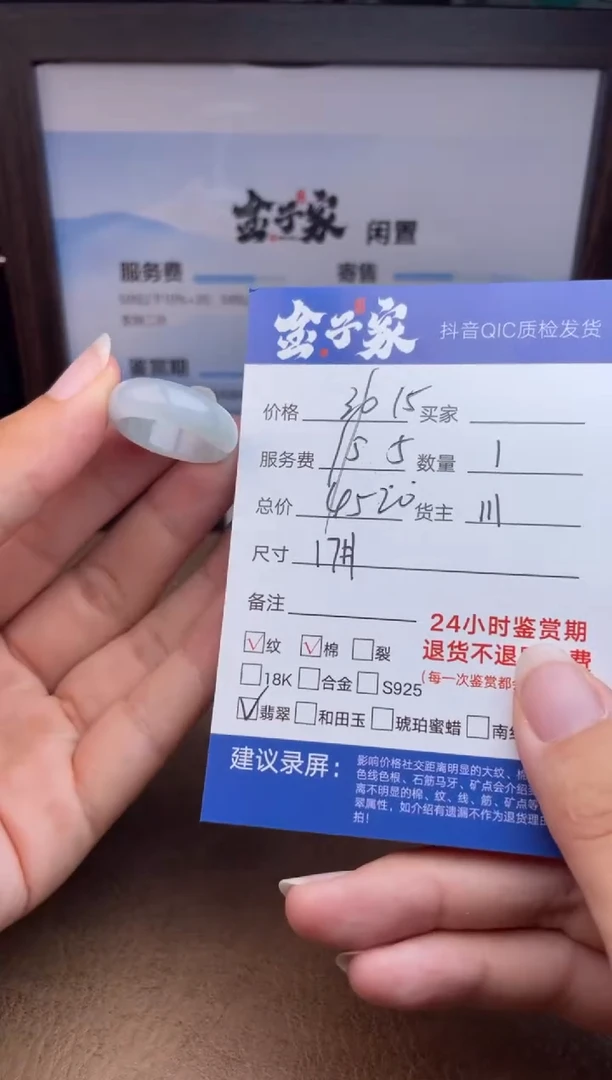 盒子家 闲置
服务费 寄售
鉴赏期
盒子家 抖音QIC质检发货
价格 3615 买家
服务费 155 数量 1
总价 4520 货主 川
尺寸 17#
备注
24小时鉴赏期
纹 棉 裂
退货不退 费
18K 合金 S925
(每一次鉴赏都
翡翠 和田玉 琥珀蜜蜡 南红
建议录屏：
影响价格社交距离明显的大纹、棉
色线色根、石筋马牙、矿点会介绍
离不明显的棉、纹、线、筋、矿点等
翠属性，如介绍有遗漏不作为退货理由
拍！